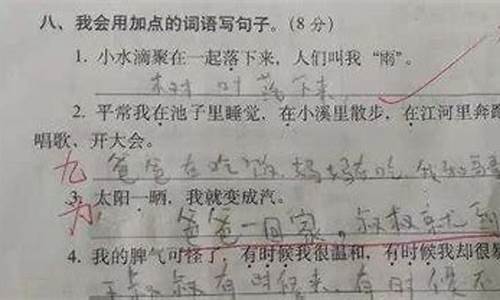 八、我会用加点的词语写句子。(8分)
1. 小水滴聚在一起落下来，人们叫我“雨”。
树叶落下来
2. 平常我在池子里睡觉，在小溪里散步，在江河里奔跑
唱歌、开大会。
爸爸在吃饭，妈妈在吃
3. 太阳一晒，我就变成汽。
爸爸一回家，叔叔就
4. 我的脾气可怪了，有时候我很温和，有时候我却很暴
叔有时候来，有时候不